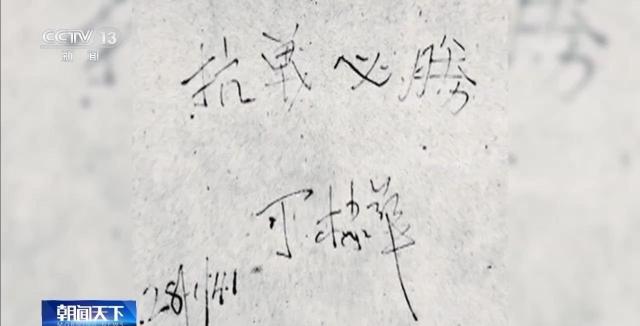 CCTV 13
新闻
抗戦必勝
丁 華
28/1/41
朝闻天下